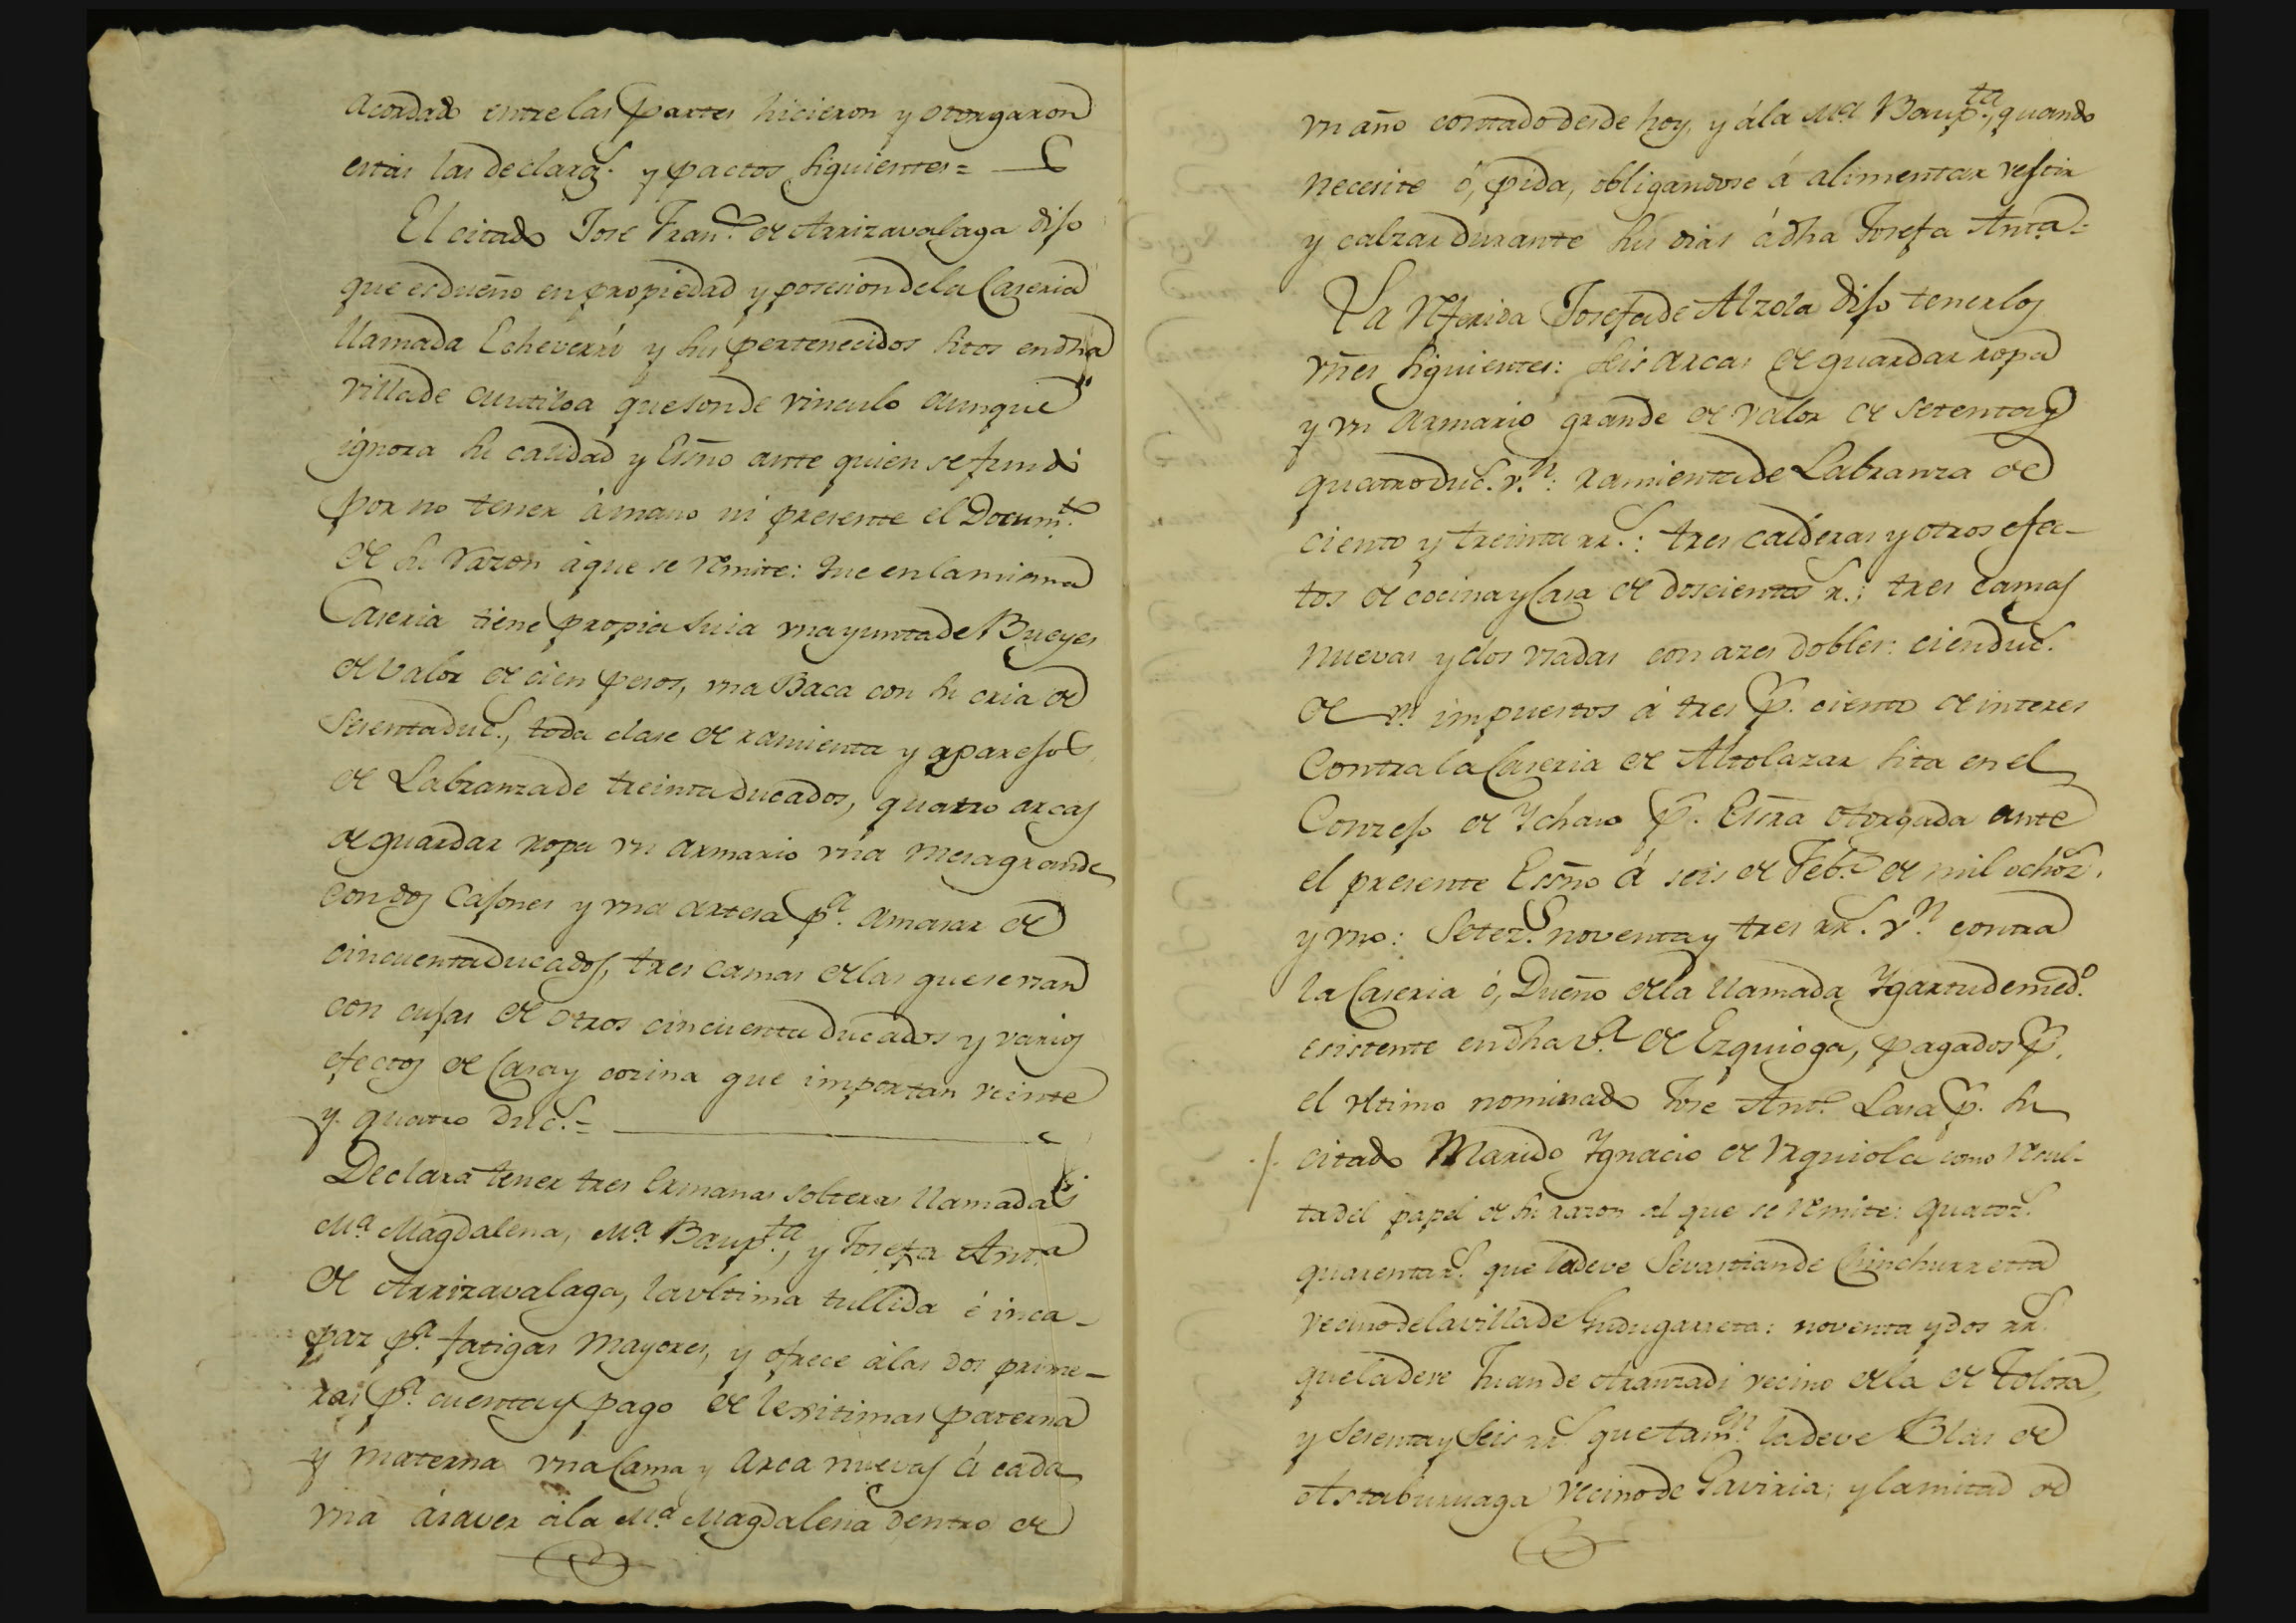 acordado entre las partes hicieron y otorgaron
estas las declaraz.s y pactos siguientes =
El citado José Fran.co de Arrizavalaga dijo
que es dueño en propiedad y posesion de la Caseria
llamada Echeverri y sus pertenecidos sitos en dha
villa de Mutiloa que son de vinculo aunque
ignora su calidad y Esñno ante quien se fundó
por no tener à mano ni presente el Docum.to
de su razon à que se remite: que en la misma
Caseria tiene propia suia una yunta de Bueyes
de valor de cien pesos, una Baca con su cria de
sesenta duc.s, toda clase de ramienta y aparejos
de Labranza de treinta ducados, quatro arcas
de guardar ropa un armario una mesa grande
con dos Cajones y una artesa p.a amasar de
cincuenta ducados, tres camas de las que se usan
con cujas de otros cincuenta ducados y varios
efectos de Casa y cozina que importan veinte
y quatro duc.s =
Declara tener tres Ermanas solteras llamadas
M.a Magdalena, M.a Baup.ta, y Josefa Ant.a
de Arrizavalaga, la ultima tullida é inca-
paz p.a fatigas mayores, y ofrece à las dos prime-
ras p.a cuenta y pago de lexitimas paterna
y materna una Cama y Arca nuevas á cada
una á saver à la M.a Magdalena dentro de
un año contado desde hoy, y á la M.a Baup.ta, quando
necesite ó, pida, obligandose á alimentar vestir
y calzar durante sus dias á dha Josefa Ant.a =
La referida Josefa de Alzola dijo tener los
vñes siguientes: seis arcas de guardar ropa
y un armario grande de valor de setenta y
quatro duc.s v.n: ramienta de Labranza de
ciento y treinta rr.s: tres calderas y otros efec-
tos de cocina y Casa de doscientos r.s; tres camas
nuevas y dos usadas con azes dobles: cien duc.s
de v.n impuestos á tres p.r ciento de interes
contra la Caseria de Altolazar sita en el
Conzejo de Ichaso p.r Esñra otorgada ante
el presente Esñno á seis de Feb.o de mil ochoz.s
y uno: Setez.s noventa y tres rr.s v.n contra
la Caseria ó, Dueño de la llamada Ygartu de med.o
esistente en dha v.a de Ezquioga, pagados p.r
el ultimo nominado José Ant.o Lasa p.r su
citado Marido Ygnacio de Urquiola como resul-
ta del papel de su razon al que se remite: quatoz.s
quarenta r.s que la deve Sevastian de Chinchurreta
vecino de la villa de Gudugarreta: noventa y dos rr.s
que la deve Juan de Aranzadi vecino de la de Tolosa,
y sesenta y seis rr.s que tam.n la deve Blas de
Astaburuaga vecino de Gaviria; y la mitad de